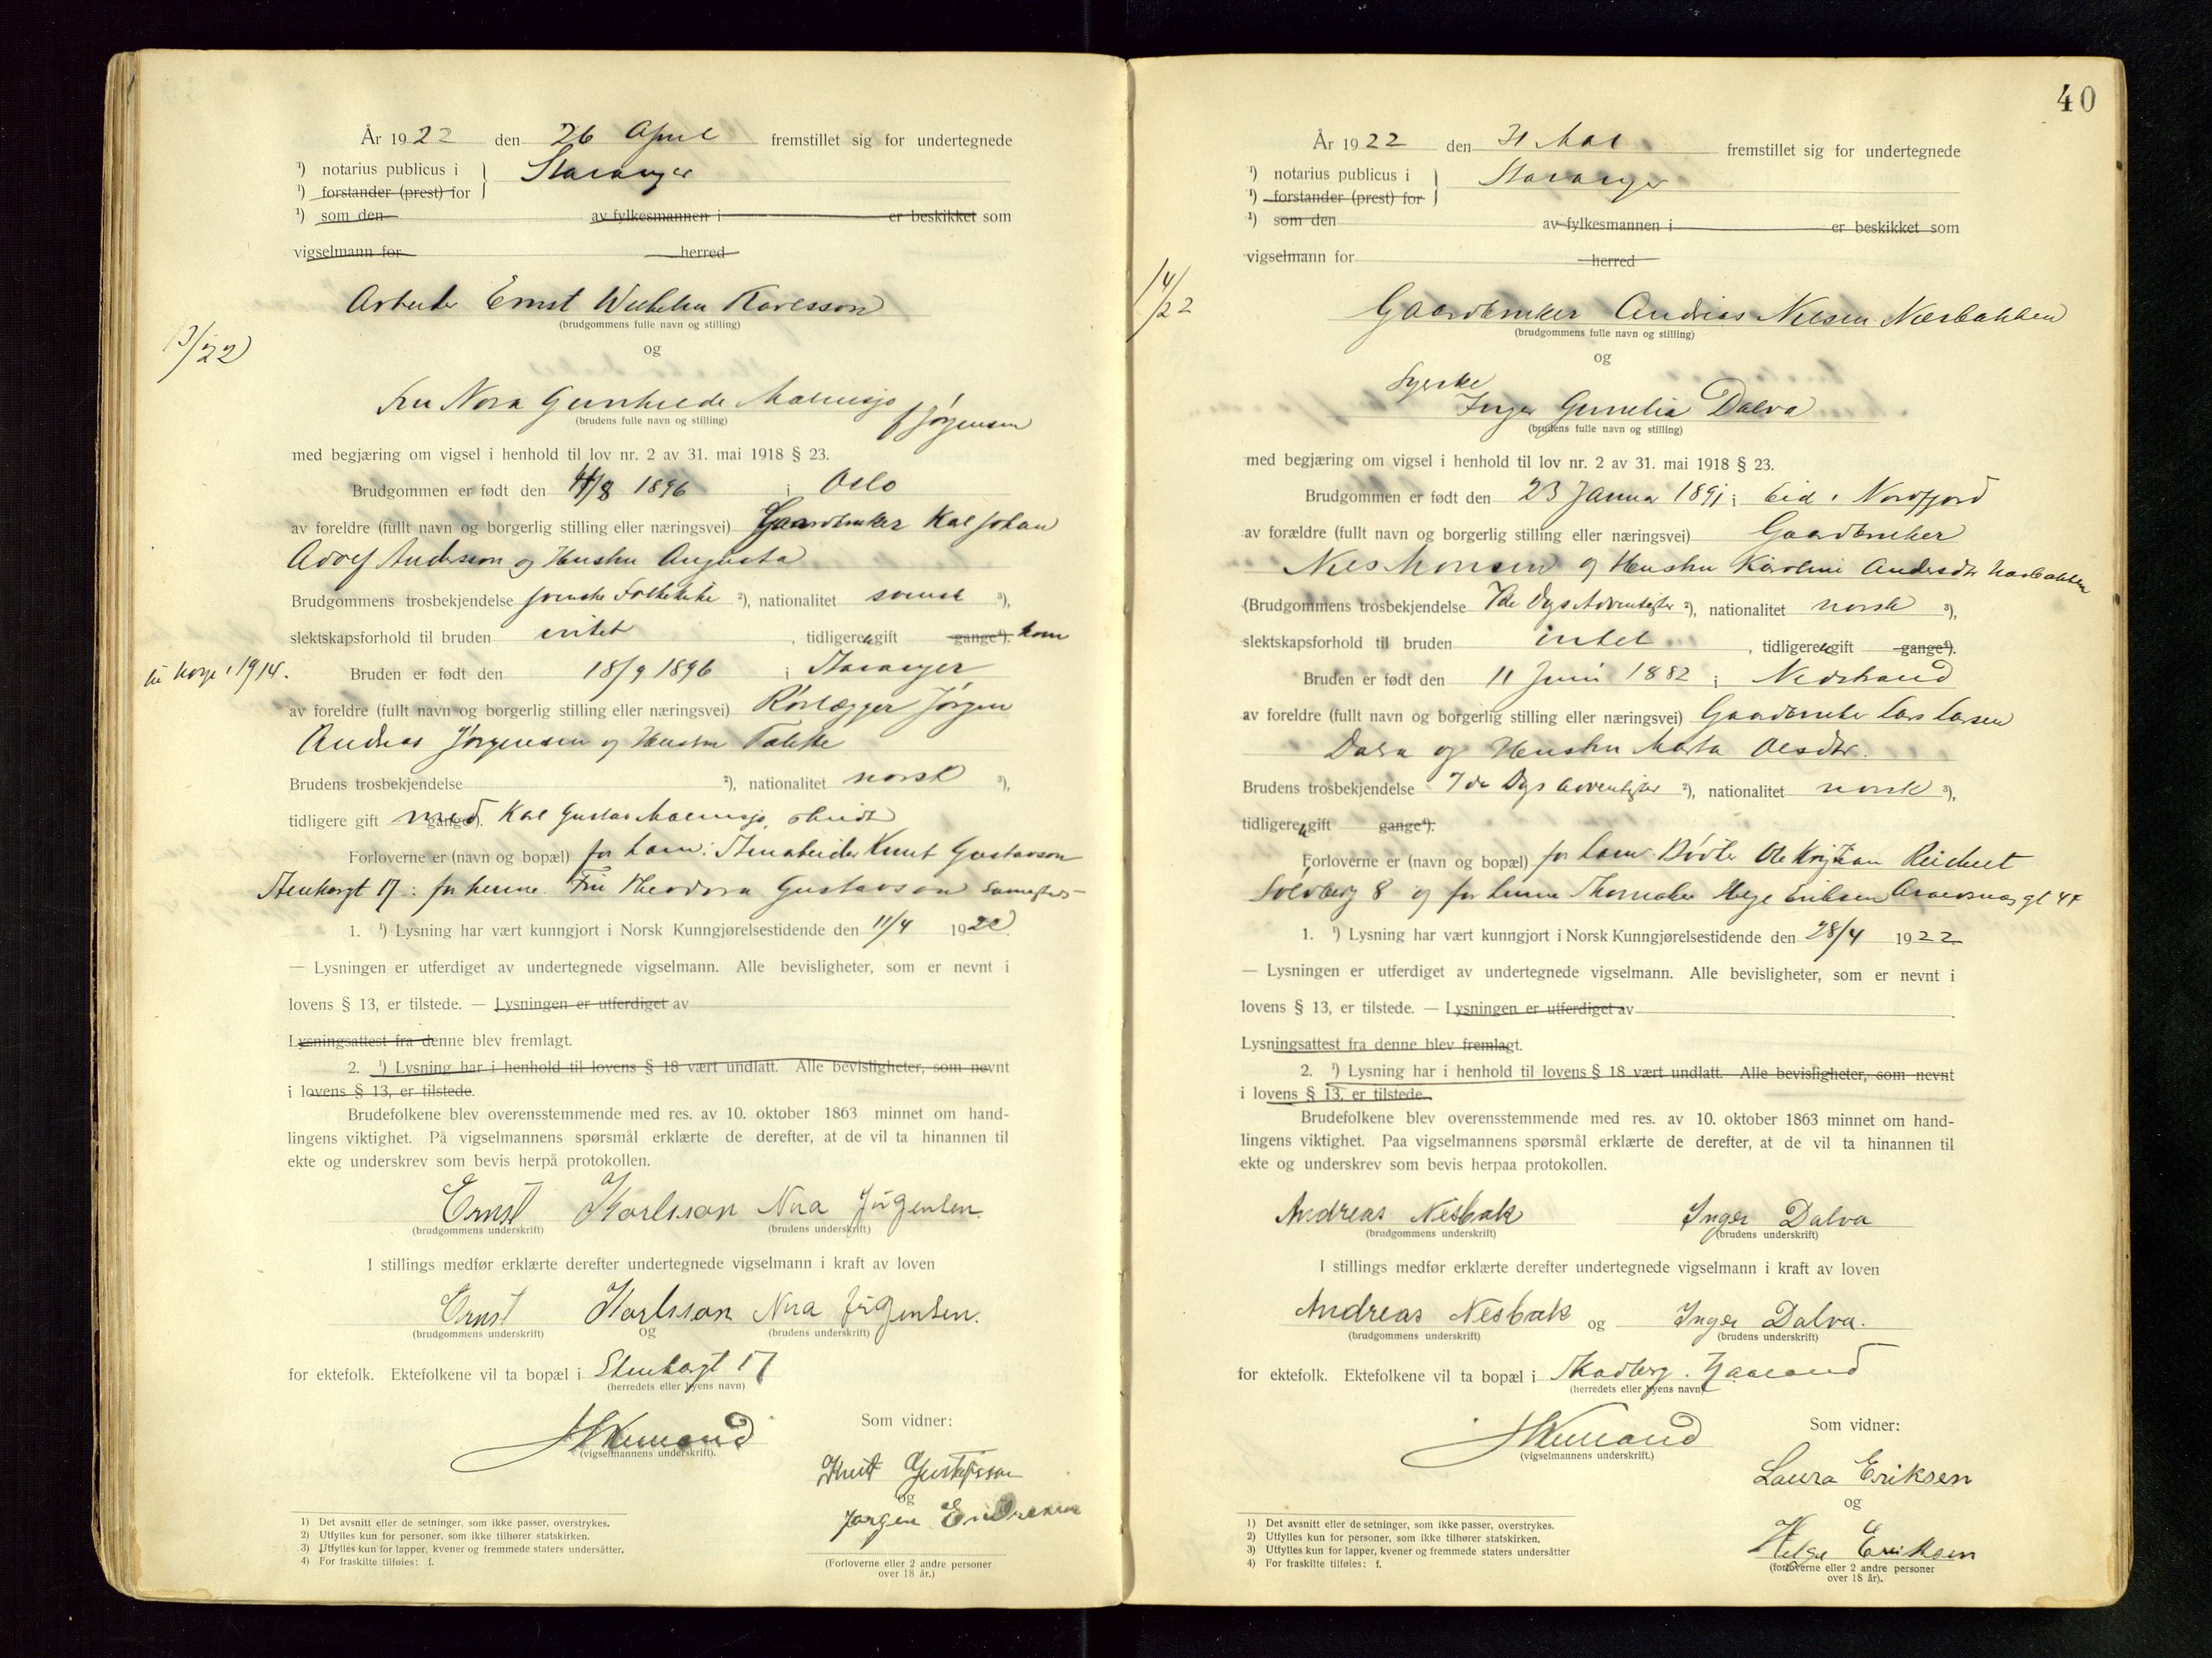 År 1922 den 26 April fremstillet sig for undertegnede
¹) notarius publicus i } Stavanger
¹) forstander (prest) for
¹) som den av fylkesmannen i er beskikket som
vigselmann for herred
Arbeider Ernst Wilhelm Karlsson
(brudgommens fulle navn og stilling)
13/22
og
Fru Nora Gunhilde Malmsjø
f Jørgensen
(brudens fulle navn og stilling)
med begjæring om vigsel i henhold til lov nr. 2 av 31. mai 1918 § 23.
Brudgommen er født den 4/8 1896 i Oslo
av foreldre (fullt navn og borgerlig stilling eller næringsvei) Gaardbruker Karl Johan
Adolf Andersson og Hustru Augusta
Brudgommens trosbekjendelse svenske Folkekirke ²), nationalitet svensk ³),
slektskapsforhold til bruden intet , tidligere u gift gange⁴). kom
til Norge i 1914.
Bruden er født den 18/9 1896 i Stavanger
av foreldre (fullt navn og borgerlig stilling eller næringsvei) Rørlægger Jørgen
Andreas Jørgensen og Hustru
Brudens trosbekjendelse ²), nationalitet norsk ³),
tidligere gift med gange⁴). Karl Gustav Malmsjø, skilt
Forloverne er (navn og bopæl) for ham: Stenarbeider Knut Gustavson
Stenkargt 17: for henne. Fru Theodora Gustavson samesteds-
1. ¹) Lysning har vært kunngjort i Norsk Kunngjørelsestidende den 11/4 1922.
— Lysningen er utferdiget av undertegnede vigselmann. Alle bevisligheter, som er nevnt i
lovens § 13, er tilstede. — Lysningen er utferdiget av
Lysningsattest fra denne blev fremlagt.
2. ¹) Lysning har i henhold til lovens § 18 vært undlatt. Alle bevisligheter, som nevnt
i lovens § 13, er tilstede.
Brudefolkene blev overensstemmende med res. av 10. oktober 1863 minnet om hand-
lingens viktighet. På vigselmannens spørsmål erklærte de derefter, at de vil ta hinannen til
ekte og underskrev som bevis herpå protokollen.
Ernst Karlsson Nora Jørgensen.
(brudgommens underskrift) (brudens underskrift)
I stillings medfør erklærte derefter undertegnede vigselmann i kraft av loven
Ernst Karlsson Nora Jørgensen.
(brudgommens underskrift) og (brudens underskrift)
for ektefolk. Ektefolkene vil ta bopæl i Stenkargt 17
(herredets eller byens navn)
Som vidner:
(vigselmannens underskrift).
Knut Gustafsson
og
Jørgen Endresen
(Forloverne eller 2 andre personer
over 18 år.)
1) Det avsnitt eller de setninger, som ikke passer, overstrykes.
2) Utfylles kun for personer, som ikke tilhører statskirken.
3) Utfylles kun for lapper, kvener og fremmede staters undersåtter.
4) For fraskilte tilføies: f.
40
År 1922 den 31 Mai fremstillet sig for undertegnede
¹) notarius publicus i } Stavanger
¹) forstander (prest) for
¹) som den av fylkesmannen i er beskikket som
vigselmann for herred
14/22
Gaardbruker Andreas Nilsen Nesbakken
(brudgommens fulle navn og stilling)
og
Syerske
Inger Gunelia Dalva
(brudens fulle navn og stilling)
med begjæring om vigsel i henhold til lov nr. 2 av 31. mai 1918 § 23.
Brudgommen er født den 23 Januar 1891 i Eid i Nordfjord
av forældre (fullt navn og borgerlig stilling eller næringsvei) Gaardbruker
Nils Monsen og Hustru Karoline Andersdtr Nesbakken
(Brudgommens trosbekjendelse 7de Dags Adventister ²), nationalitet norsk ³),
slektskapsforhold til bruden intet , tidligere u gift gange⁴).
Bruden er født den 11 Juni 1882 i Nedstrand
av foreldre (fullt navn og borgerlig stilling eller næringsvei) Gaardbruker Lars Larsen
Dalva og Hustru Marta Olsdtr.
Brudens trosbekjendelse 7de Dags Adventister ²), nationalitet norsk ³),
tidligere u gift gange⁴).
Forloverne er (navn og bopæl) for ham: Bødker Ole Kristian Reichelt
Solvberg 8 og for henne Skomaker Helge Eriksen gt 44
1. ¹) Lysning har vært kunngjort i Norsk Kunngjørelsestidende den 28/4 1922
— Lysningen er utferdiget av undertegnede vigselmann. Alle bevisligheter, som er nevnt i
lovens § 13, er tilstede. — Lysningen er utferdiget av
Lysningsattest fra denne blev fremlagt.
2. ¹) Lysning har i henhold til lovens § 18 vært undlatt. Alle bevisligheter, som nevnt
i lovens § 13, er tilstede.
Brudefolkene blev overensstemmende med res. av 10. oktober 1863 minnet om hand-
lingens viktighet. Paa vigselmannens spørsmål erklærte de derefter, at de vil ta hinannen til
ekte og underskrev som bevis herpaa protokollen.
Andreas Nesbak Inger Dalva
(brudgommens underskrift) (brudens underskrift)
I stillings medfør erklærte derefter undertegnede vigselmann i kraft av loven
Andreas Nesbak og Inger Dalva.
(brudgommens underskrift) (brudens underskrift)
for ektefolk. Ektefolkene vil ta bopæl i Skadberg. Haaland
(herredets eller byens navn)
Som vidner:
(vigselmannens underskrift.)
Laura Eriksen
og
Helge Eriksen
(forloverne eller 2 andre personer
over 18 år).
1) Det avsnitt eller de setninger, som ikke passer, overstrykes.
2) Utfylles kun for personer, som ikke tilhører statskirken.
3) Utfylles kun for lapper, kvener og fremmede staters undersåtter
4) For fraskilte tilføies: f.